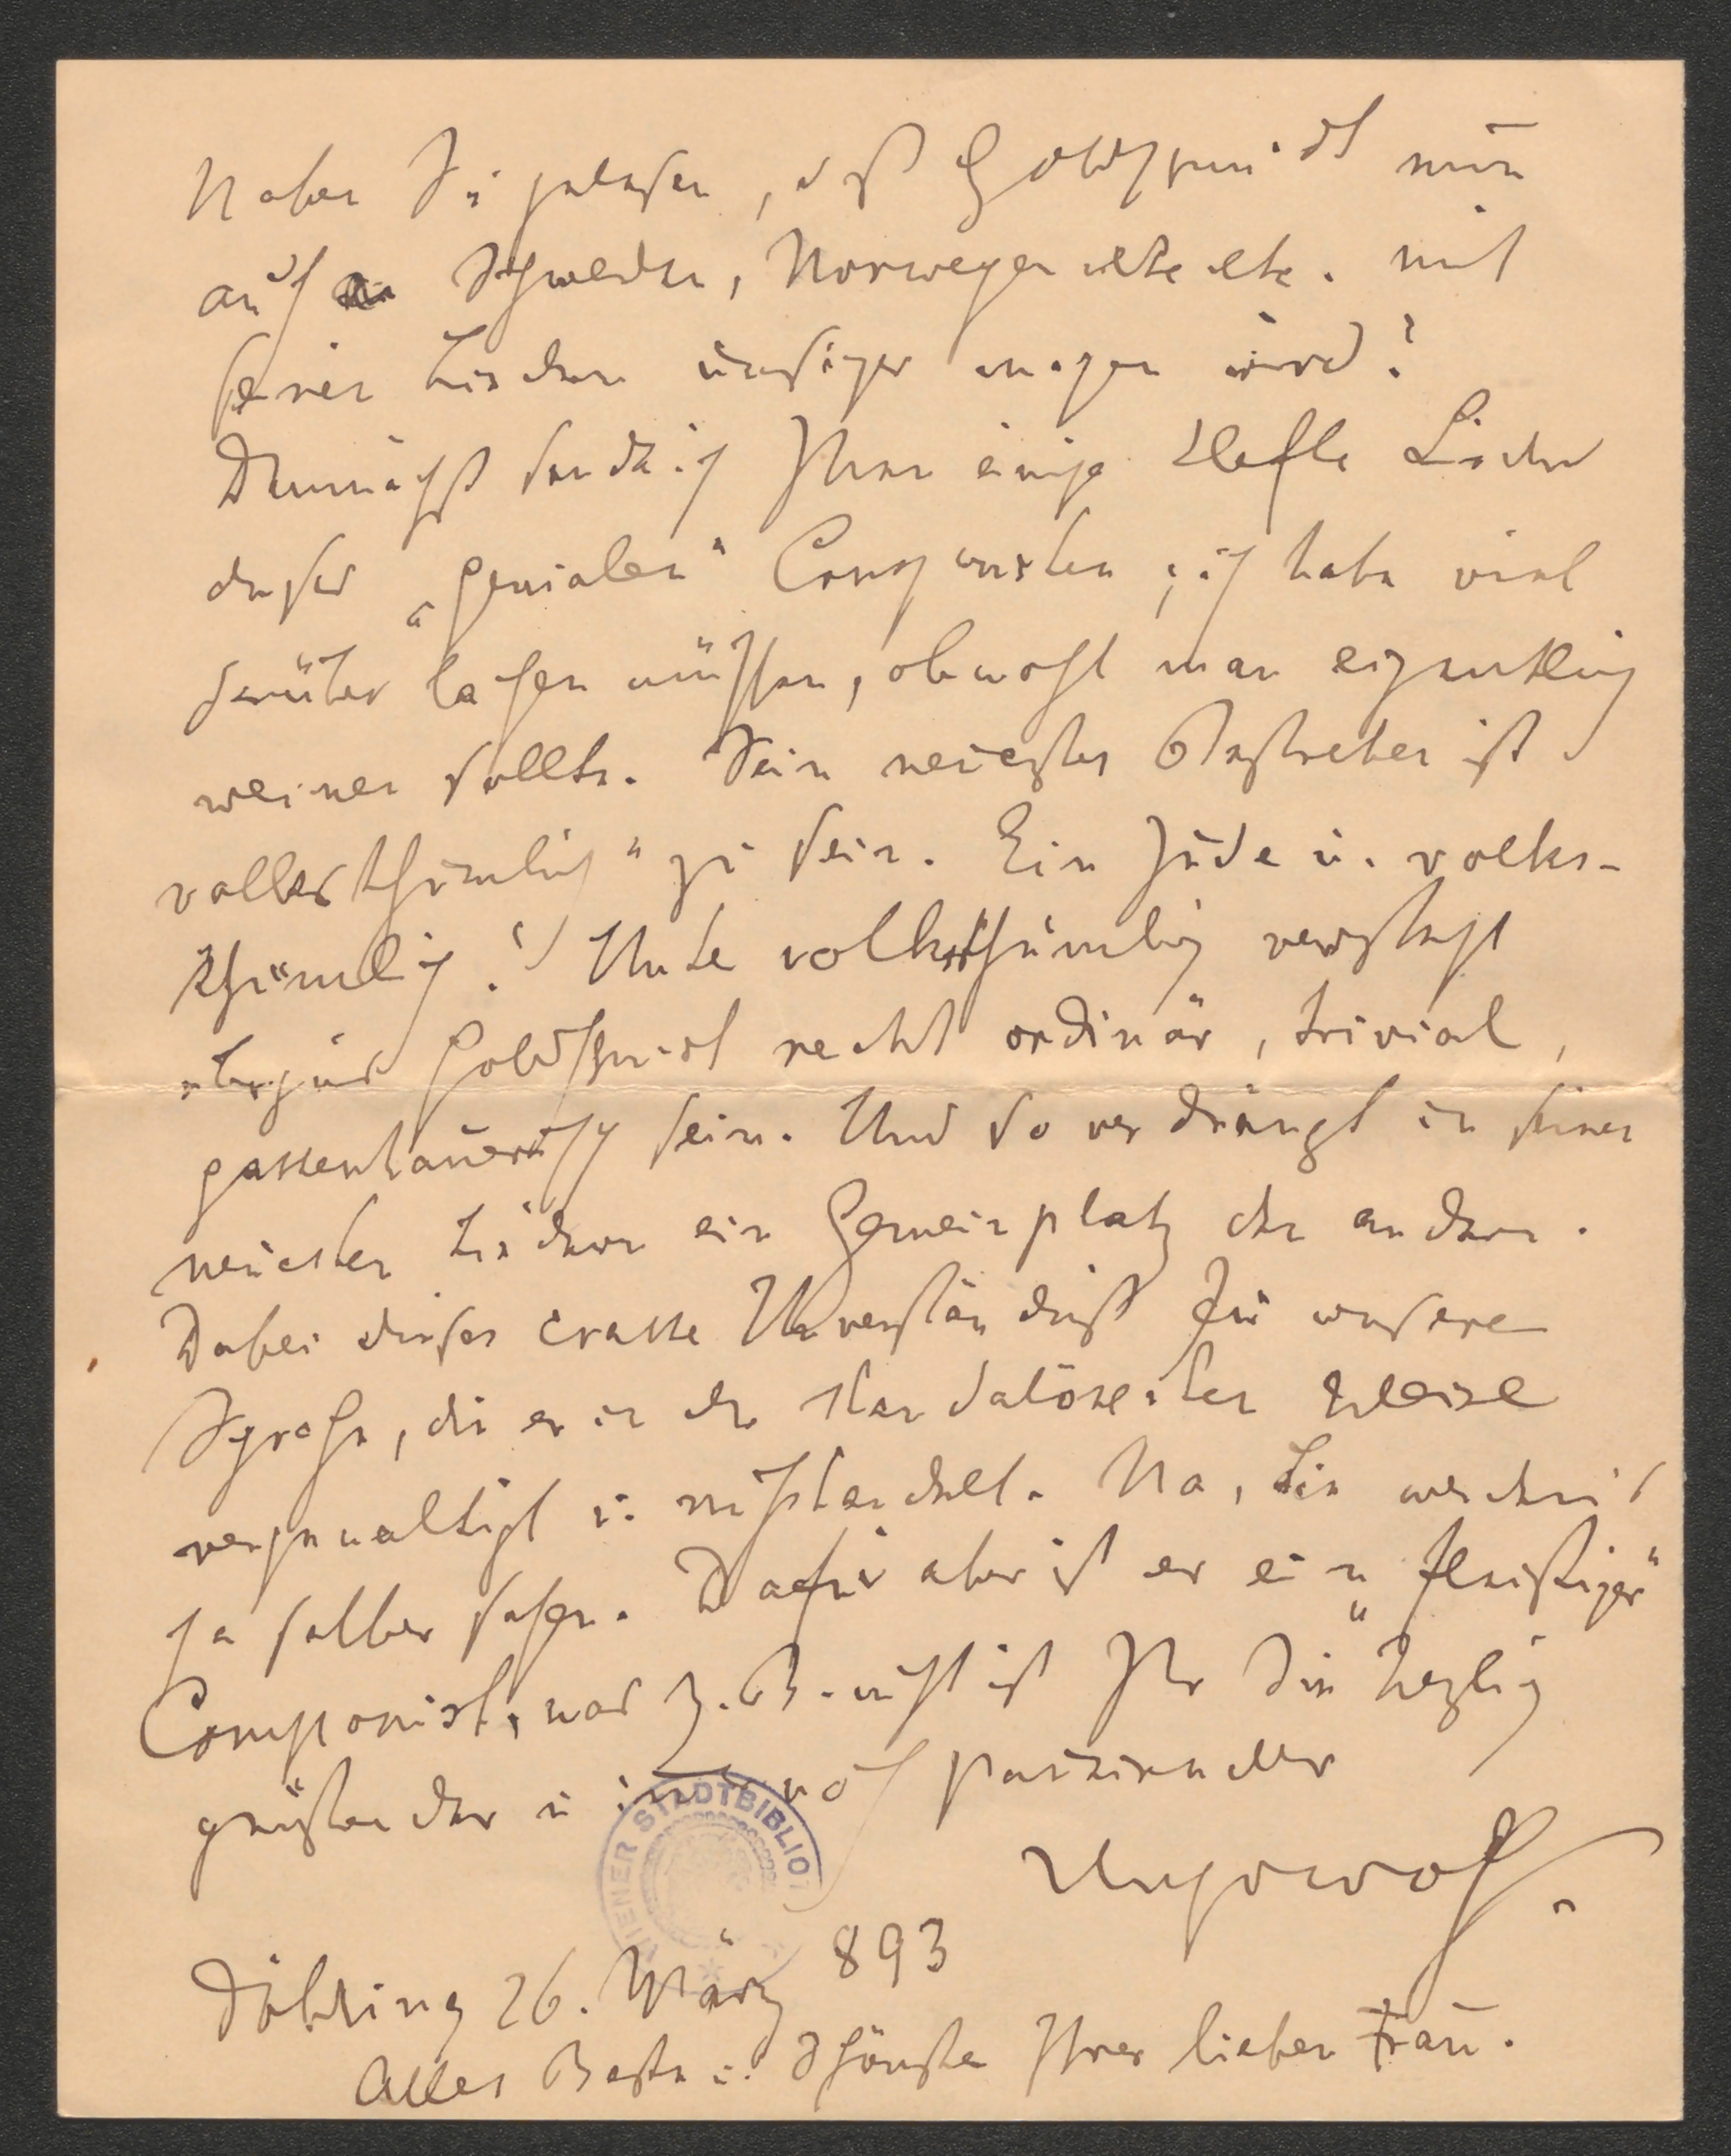 Haben Sie gelesen, daß Goldschmidt nun
auch Schweden, Norwegen etc etc. mit
seinen Liedern unsicher machen wird?
Demnächst sende ich Ihnen einige Hefte Lieder
dieses „genialen“ Componisten; ich habe viel
darüber lachen müssen, obwohl man eigentlich
weinen sollte. Sein neuestes Bestreben ist
volksthümlich“ zu sein. Ein Jude u. volks-
thümlich! Unter volksthümlich versteht
Goldschmidt recht ordinär, trivial,
gassenhauerisch sein. Und so verdrängt in seinen
neuesten Liedern ein Gemeinplatz den andern.
Dabei dieses crasse Unverständniß für unsere
Sprache, die er in der skandalösesten Weise
vergewaltigt u. mißhandelt. Na, Sie werden's
ja selber sehen. Dafür aber ist er ein „fleißiger“
Componist, was z. B. nicht ist Ihr Sie herzlich
grüßender u. immer noch pausirender
Hugo Wolf.
Döbling 26. März 893
Alles Beste u. Schönste Ihrer lieben Frau.
WIENER STADTBIBLIO